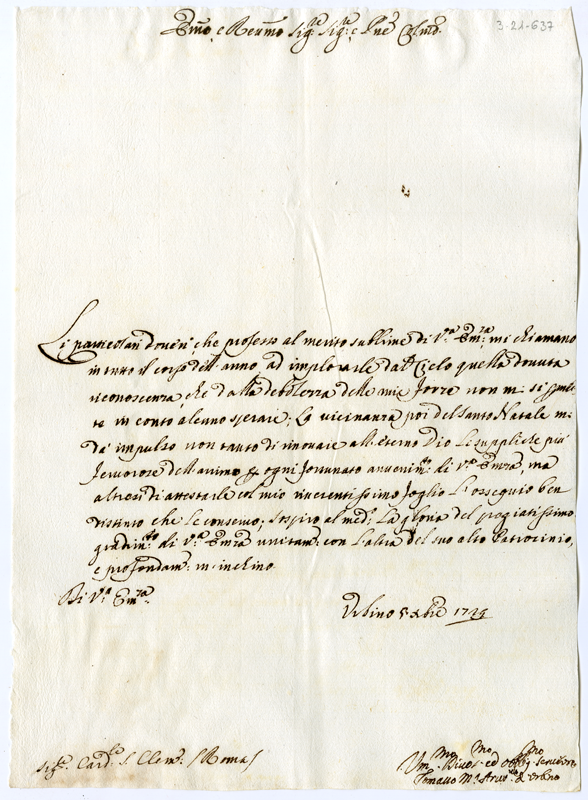 3-21-637
Emo, e Revmo Sigre Sigre, e Pne Colmo.
Li particolari doveri, che professo al merito sublime di Va. Emza. mi chiamano
in tutto il corso dell'anno, ad implorarle dal Cielo quella dovuta
riconoscenza, che dalla debolezza delle mie forze non mi si
in conto alcuno sperare; La vicinanza poi del Santo Natale mi
dà impulso non tanto di rinovare all'eterno Dio le suppliche più
fervorose dell'animo p ogni fortunato avvenimto. di Va. Emza, ma
altresì di attestarle col mio riverentissimo foglio l'ossequio ben
distinto che le conservo; sospiro al medo. la gloria del pregiatissimo
gradimto. di Va. Emza unitame. con l'altra del suo alto Patrocinio,
e profondame. m'inchino
Di Va. Emza.
Urbino 5 Xbre 1724
Sigr. Cardle S. Clemte. (Roma)
Umo. Divo. ed Obbligmo servitore
Tomaso Ma. Arcivo. d'Urbino